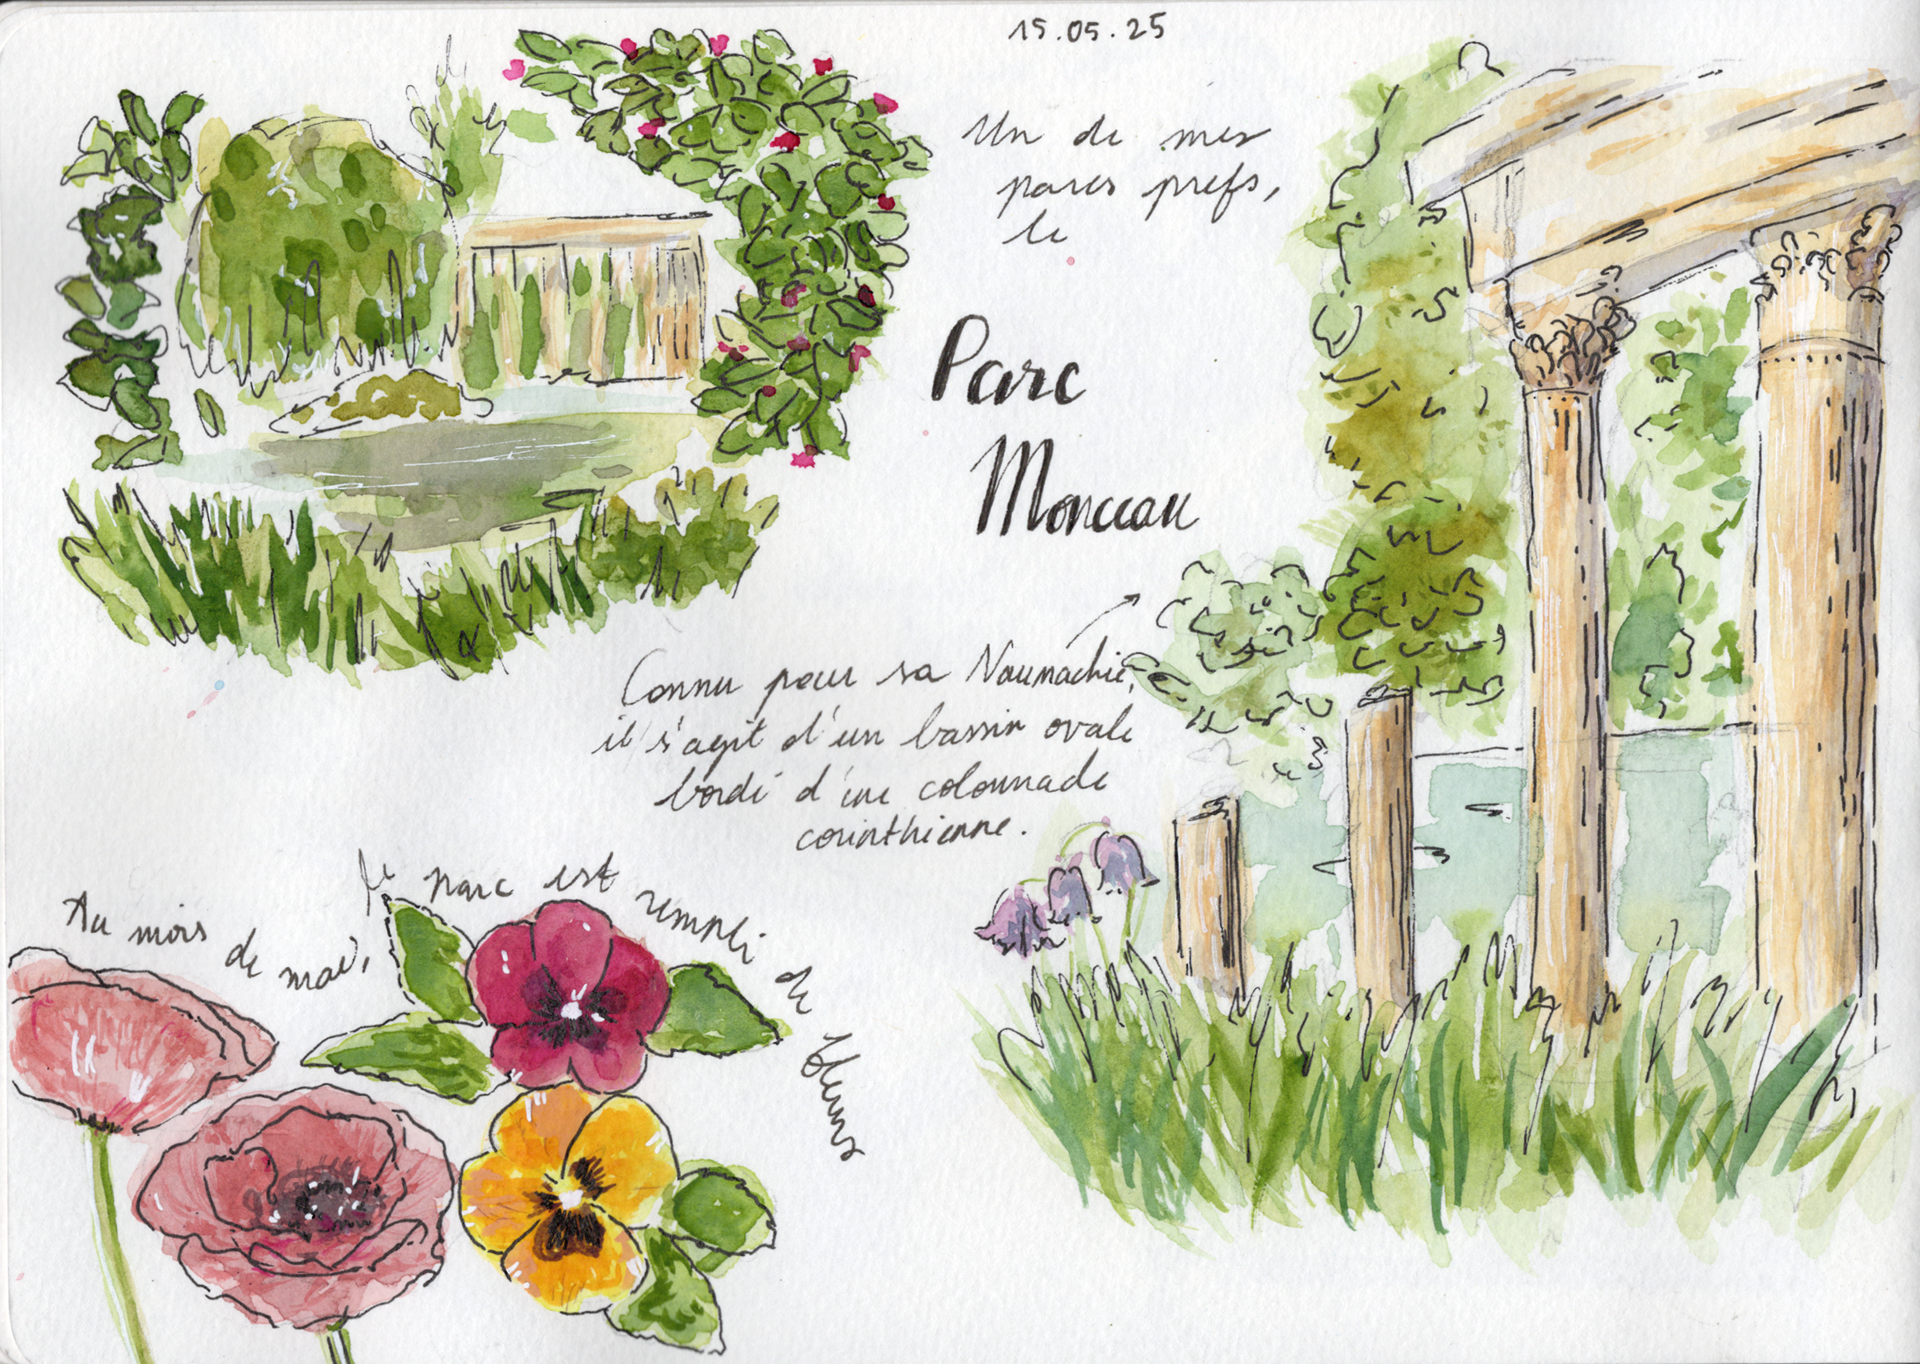 15.05.25
Un de mes
parcs préfs,
le
Parc
Monceau
Connu pour sa Naumachie,
il s'agit d'un bassin ovale
bordé d'une colonnade
corinthienne.
Au mois de mai, le parc est rempli de fleurs